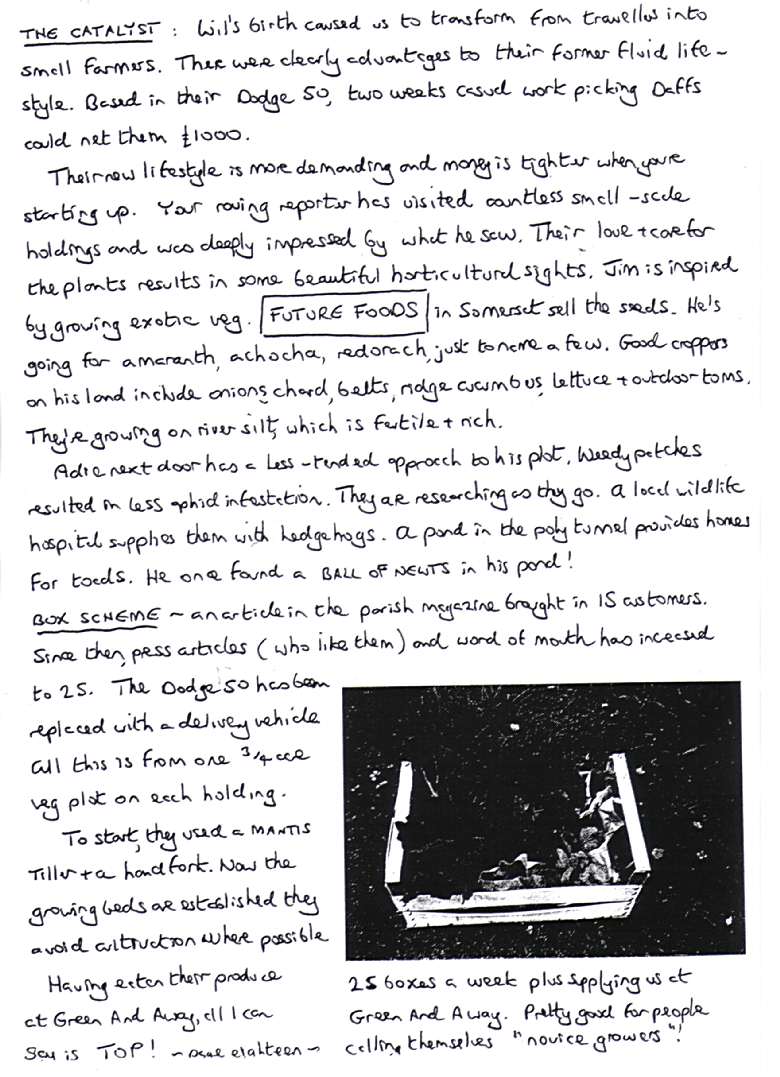 THE CATALYST : Wil's birth caused us to transform from travellers into
small farmers. There were clearly advantages to their former fluid life-
style. Based in their Dodge 50, two weeks casual work picking Daffs
could net them £1000.
Their new lifestyle is more demanding and money is tighter when you're
starting up. Your roving reporter has visited countless small-scale
holdings and was deeply impressed by what he saw. Their love + care for
the plants results in some beautiful horticultural sights. Jim is inspired
by growing exotic veg. FUTURE FOODS in Somerset sell the seeds. He's
going for amaranth, achocha, redorach, just to name a few. Good croppers
on his land include onions, chard, belts, ridge cucumbers, lettuce + outdoor toms.
They're growing on river silt, which is fertile + rich.
Adie next door has a less-tended approach to his plot. Weedy patches
resulted in less aphid infestation. They are researching as they go. A local wildlife
hospital supplies them with hedgehogs. A pond in the poly tunnel provides homes
for toads. He once found a BALL OF NEWTS in his pond!
BOX SCHEME ~ an article in the parish magazine brought in 15 customers.
Since then, press articles (who like them) and word of mouth has increased
to 25. The Dodge 50 has been
replaced with a delivery vehicle
All this is from one 3/4 acre
veg plot on each holding.
To start, they used a MANTIS
Tiller + a hand fork. Now the
growing beds are established they
avoid cultivation where possible
Having eaten their produce
at Green And Away, all I can
say is TOP! ~ Dave eighteen ~
25 boxes a week plus supplying us at
Green And Away. Pretty good for people
calling themselves "novice growers"!